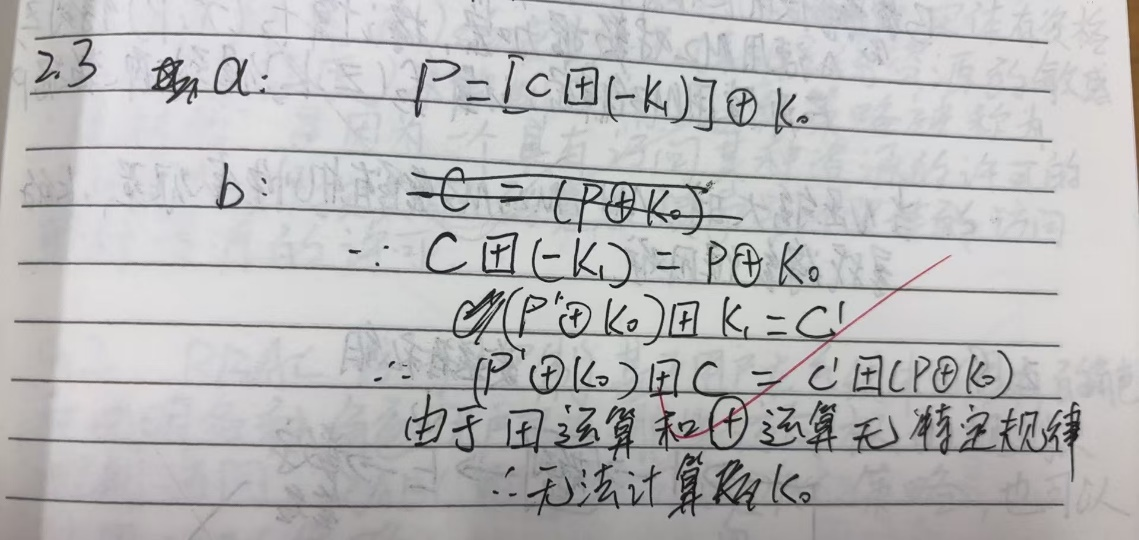 2.3 a: P = [C ⊞ (-K₁)] ⊕ K₀
b: C = (P ⊕ K₀)
∵ C ⊞ (-K₁) = P ⊕ K₀
(P' ⊕ K₀) ⊞ K₁ = C'
∴ (P' ⊕ K₀) ⊞ C = C' ⊞ (P ⊕ K₀)
由于 ⊞ 运算 和 ⊕ 运算 无 特定规律
∴ 无法计算 K₀